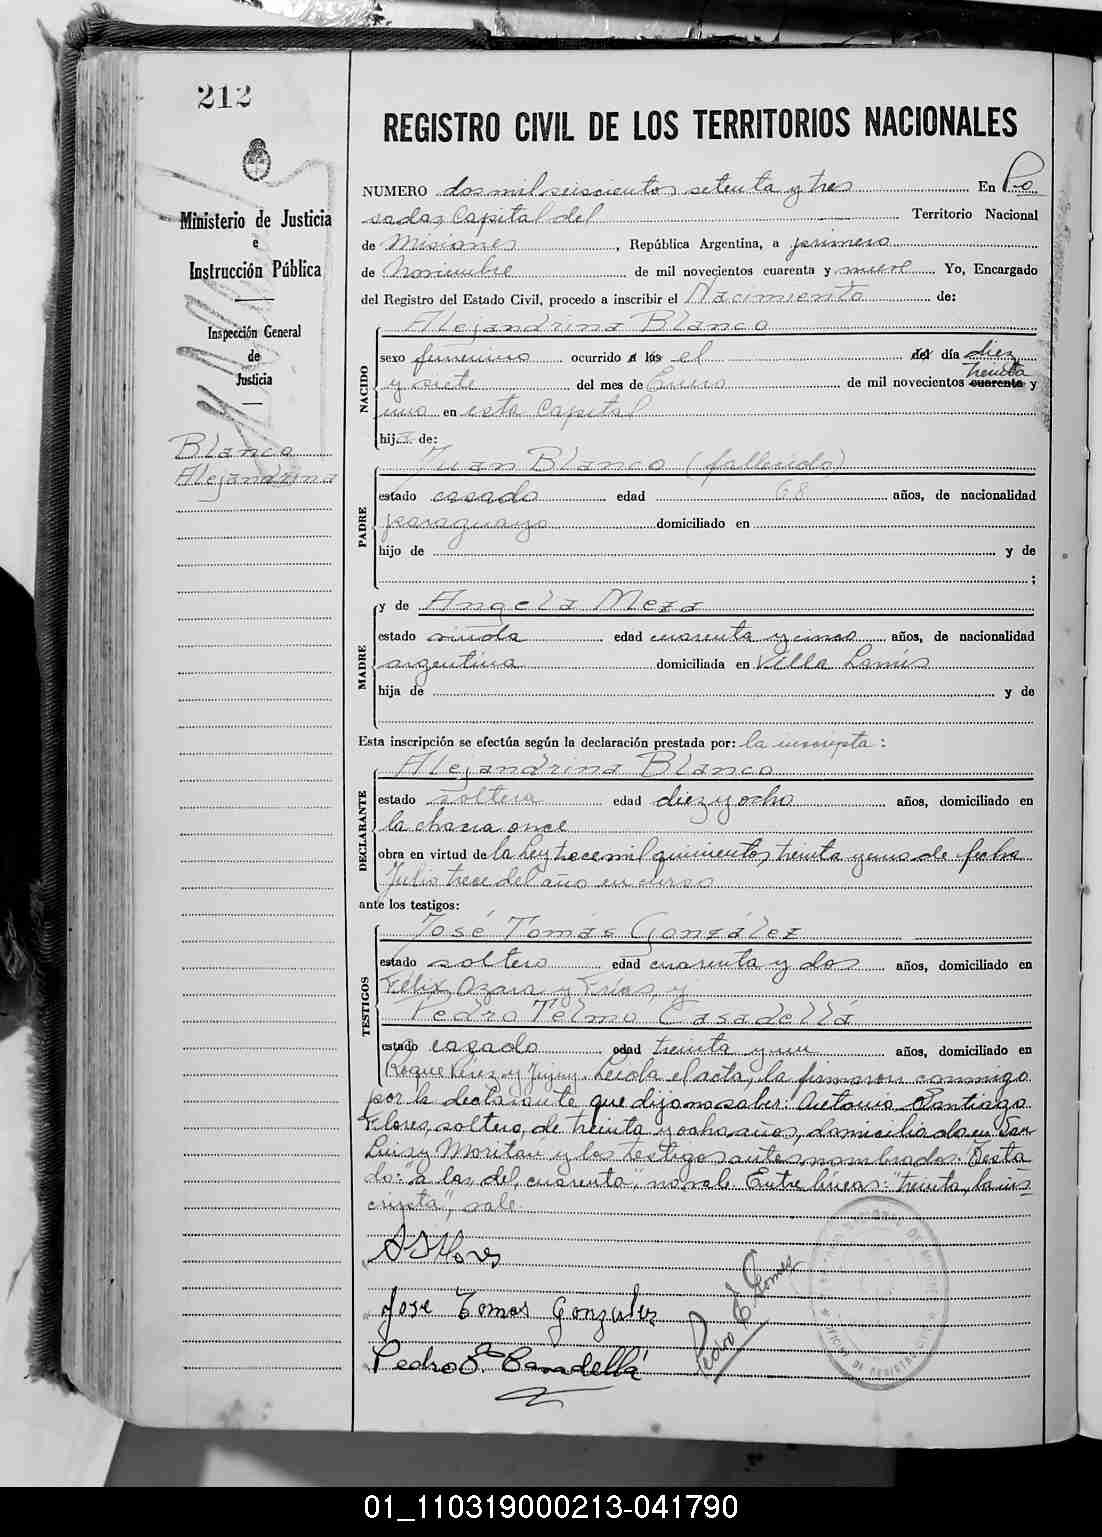 212
REGISTRO CIVIL DE LOS TERRITORIOS NACIONALES
Ministerio de Justicia
e
Instrucción Pública
Inspección General
de
Justicia
Blanco
Alejandrina
NUMERO dos mil seiscientos setenta y tres En Po
sadas, Capital del Territorio Nacional
de Misiones, República Argentina, a primero
de Noviembre de mil novecientos cuarenta y nueve Yo, Encargado
del Registro del Estado Civil, procedo a inscribir el Nacimiento de:
NACIDO
Alejandrina Blanco
sexo femenino ocurrido a las el del día diez
treinta
y siete del mes de Enero de mil novecientos cuarenta y
uno en esta Capital
hija de:
PADRE
Juan Blanco (fallecido)
estado casado edad 68 años, de nacionalidad
paraguayo domiciliado en
hijo de y de
;
MADRE
y de Angela Meza
estado viuda edad cuarenta y cinco años, de nacionalidad
argentina domiciliada en Villa Lanús
hija de y de
Esta inscripción se efectúa según la declaración prestada por: la inscripta:
DECLARANTE
Alejandrina Blanco
estado soltera edad diez y ocho años, domiciliado en
la chacra once
obra en virtud de la Ley trece mil quinientos treinta y uno de fecha
Julio trece del año en curso
ante los testigos:
TESTIGOS
José Tomás González
estado soltero edad cuarenta y dos años, domiciliado en
Félix Azara y Frías, y
Pedro Telmo Casadellá
estado casado edad treinta y un años, domiciliado en
Roque Pérez y Jujuy. Leída el acta, la firmaron conmigo
por la declarante que dijo no saber: Antonio Santiago
Flores, soltero, de treinta y ocho años, domiciliado en San
Luis y Moritan y los testigos antes nombrados. Testa
do: "a las, del, cuarenta", no vale. Entre líneas: "treinta, la ins
cripta", vale.
A S Flores
Jose Tomas Gonzalez
Pedro E. Gomez
Pedro T. Casadellá
01_110319000213-041790